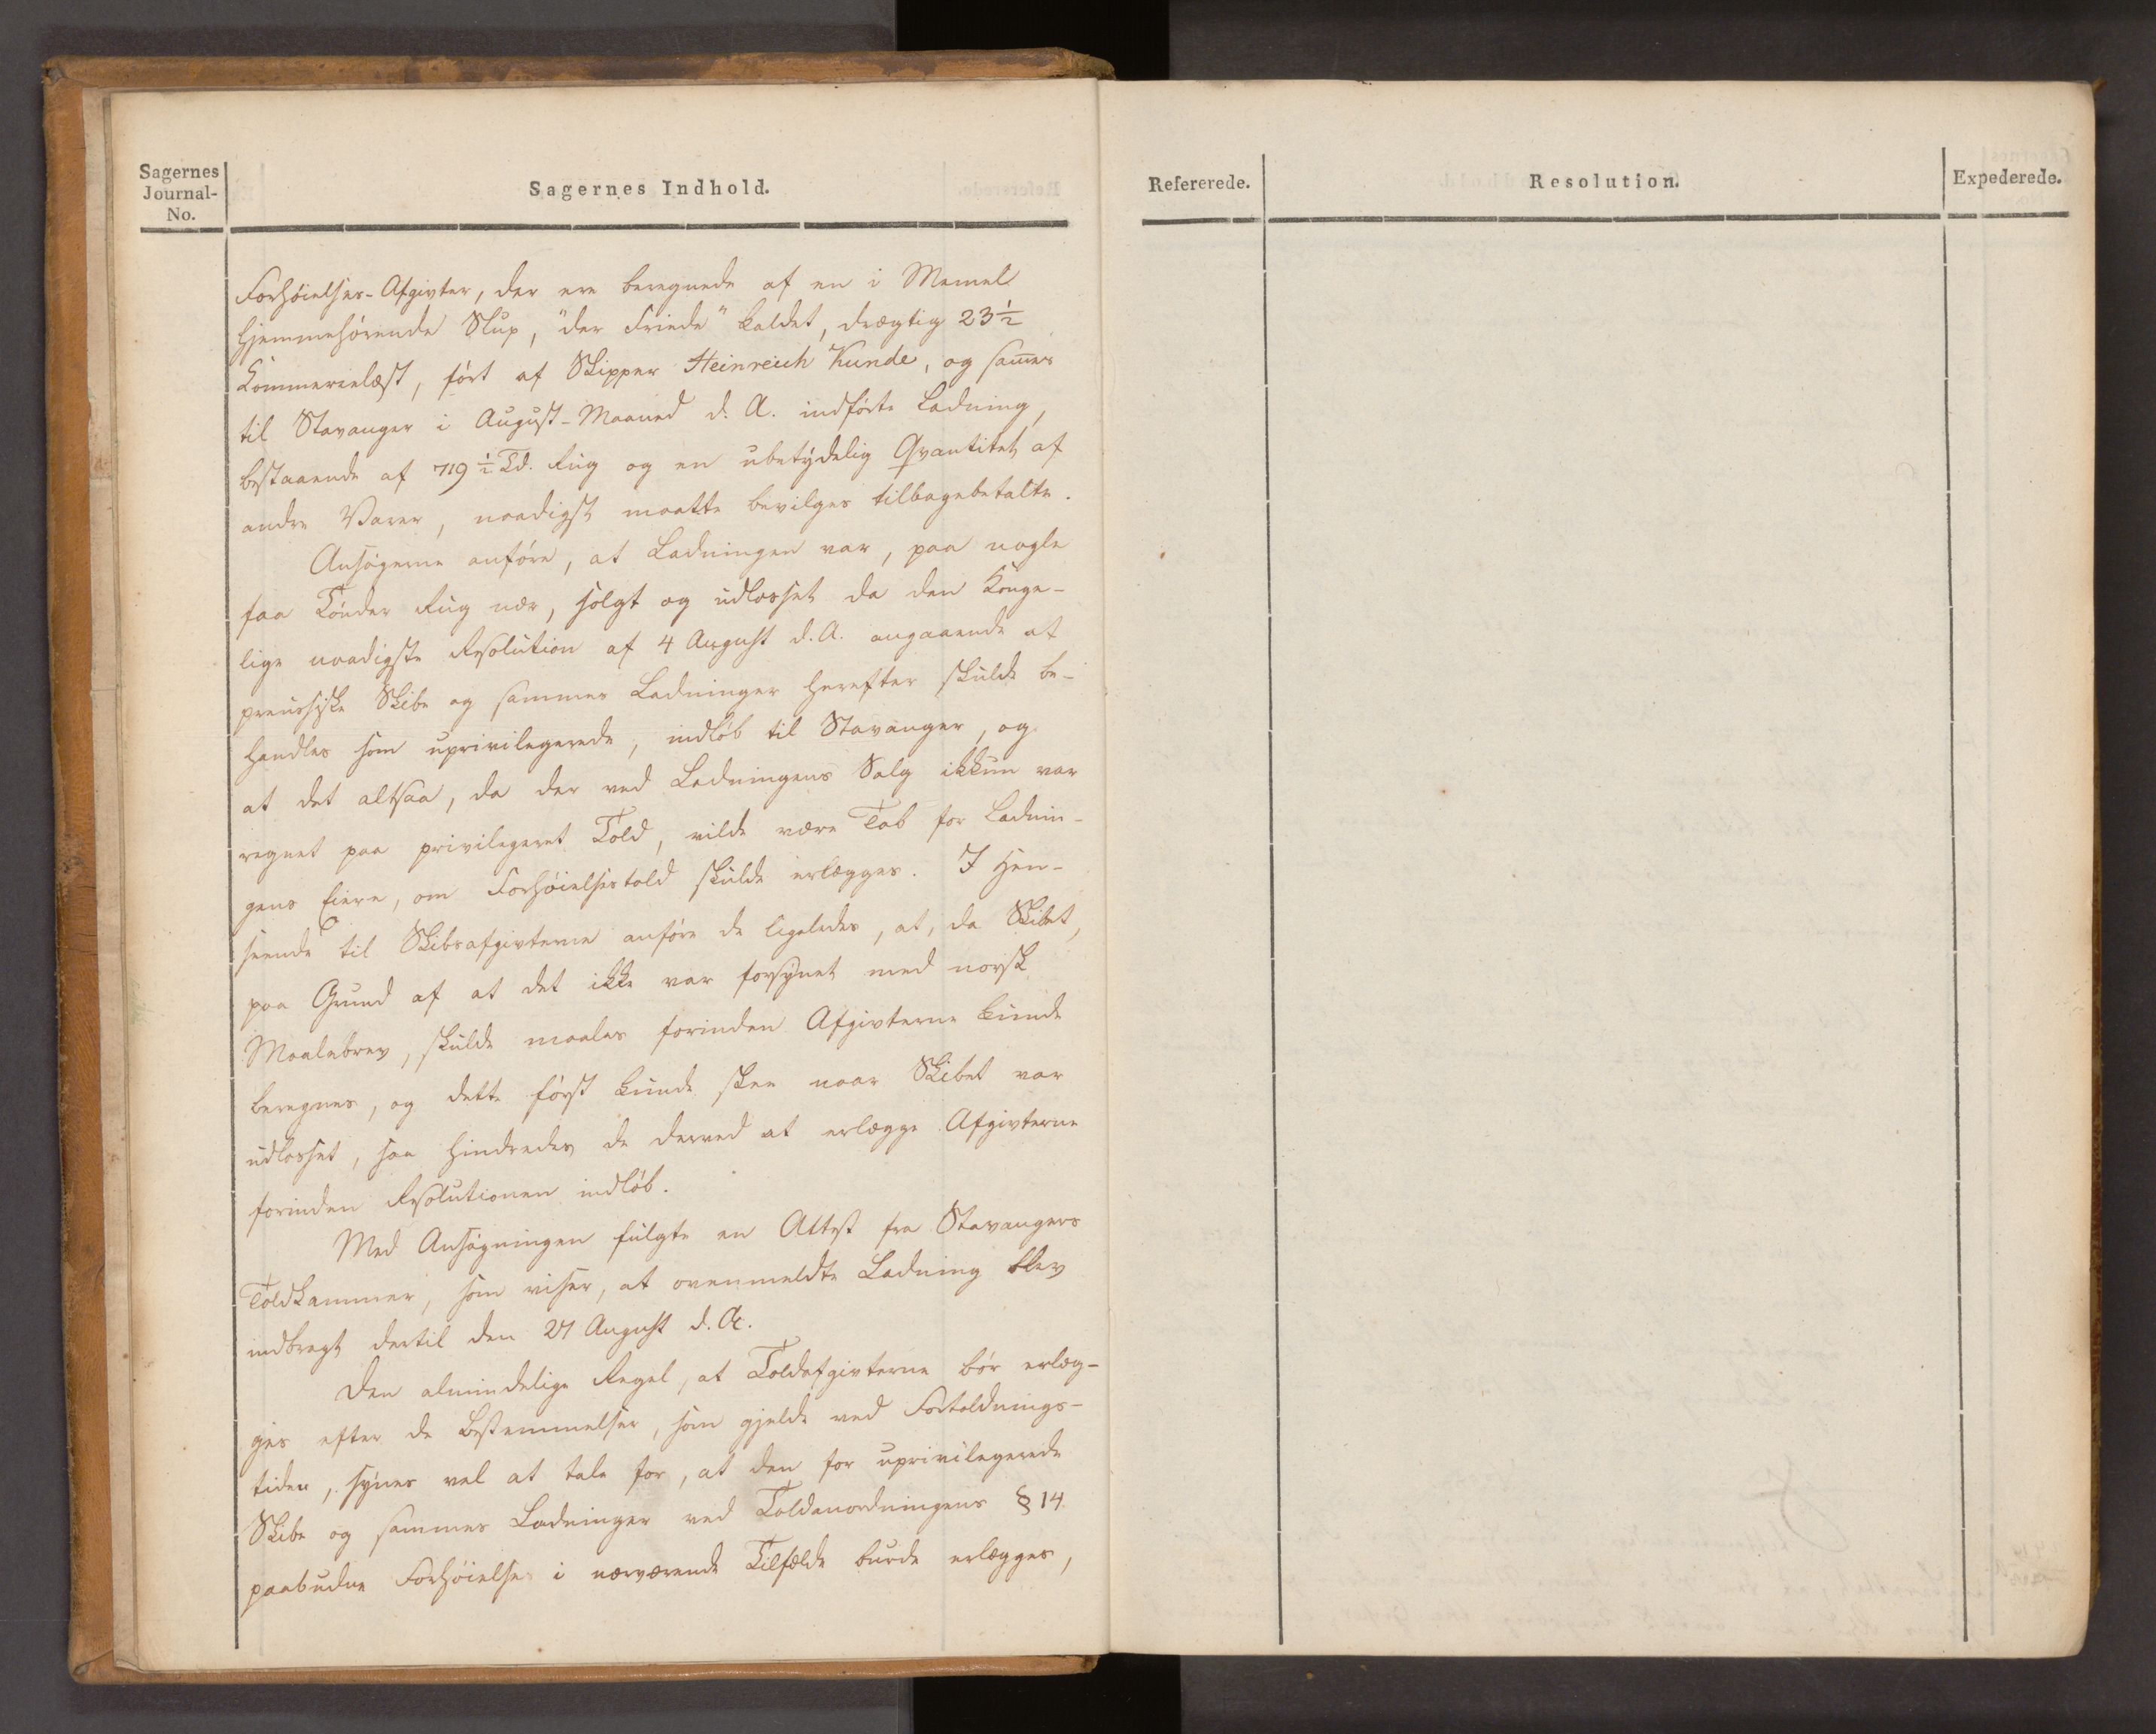 Sagernes
Journal-
No.
Sagernes Indhold.
Refererede.
Resolution.
Expederede.
Forhöielses-Afgivter, der ere beregnede af en i Memel
hjemmehörende Slup, "der Friede" kaldet, drægtig 23 1/2
Kommercelæst, fört af Skipper Heinreich Kunde, og sammes
til Stavanger i August-Maaned d. A. indförte Ladning,
bestaaende af 719 1/2 Td. Rug og en ubetydelig Qvantitet af
andre Varer, naadigst maatte bevilges tilbagebetalte.
Ansögerne anföre, at Ladningen var, paa nogle
faa Tönder Rug nær, solgt og udlosset da den Konge-
lige naadigste Resolution af 4 August d. A. angaaende at
preussiske Skibe og sammes Ladninger herefter skulde be-
handles som uprivilegerede, indlöb til Stavanger, og
at det altsaa, da der ved Ladningens Salg ikkun var
regnet paa privilegeret Told, vilde være Tab for Ladnin-
gens Eiere, om Forhöielsestold skulde erlægges. I Hen-
seende til Skibsafgivterne anföre de ligeledes, at, da Skibet,
paa Grund af at det ikke var forsynet med norsk
Maalebrev, skulde maales forinden Afgivterne kunde
beregnes, og dette först kunde skee naar Skibet var
udlosset, saa hindredes de derved at erlægge Afgivterne
forinden Resolutionen indlöb.
Med Ansögningen fulgte en Attest fra Stavangers
Toldkammer, som viser, at ovenmeldte Ladning blev
indbragt dertil den 21 August d. A.
Den almindelige Regel, at Toldafgivterne bör erlæg-
ges efter de Bestemmelser, som gjelde ved Fortoldnings-
tiden, synes vel at tale for, at den for uprivilegerede
Skibe og sammes Ladninger ved Toldanordningens § 14
paabudne Forhöielse i nærværende Tilfælde burde erlægges,